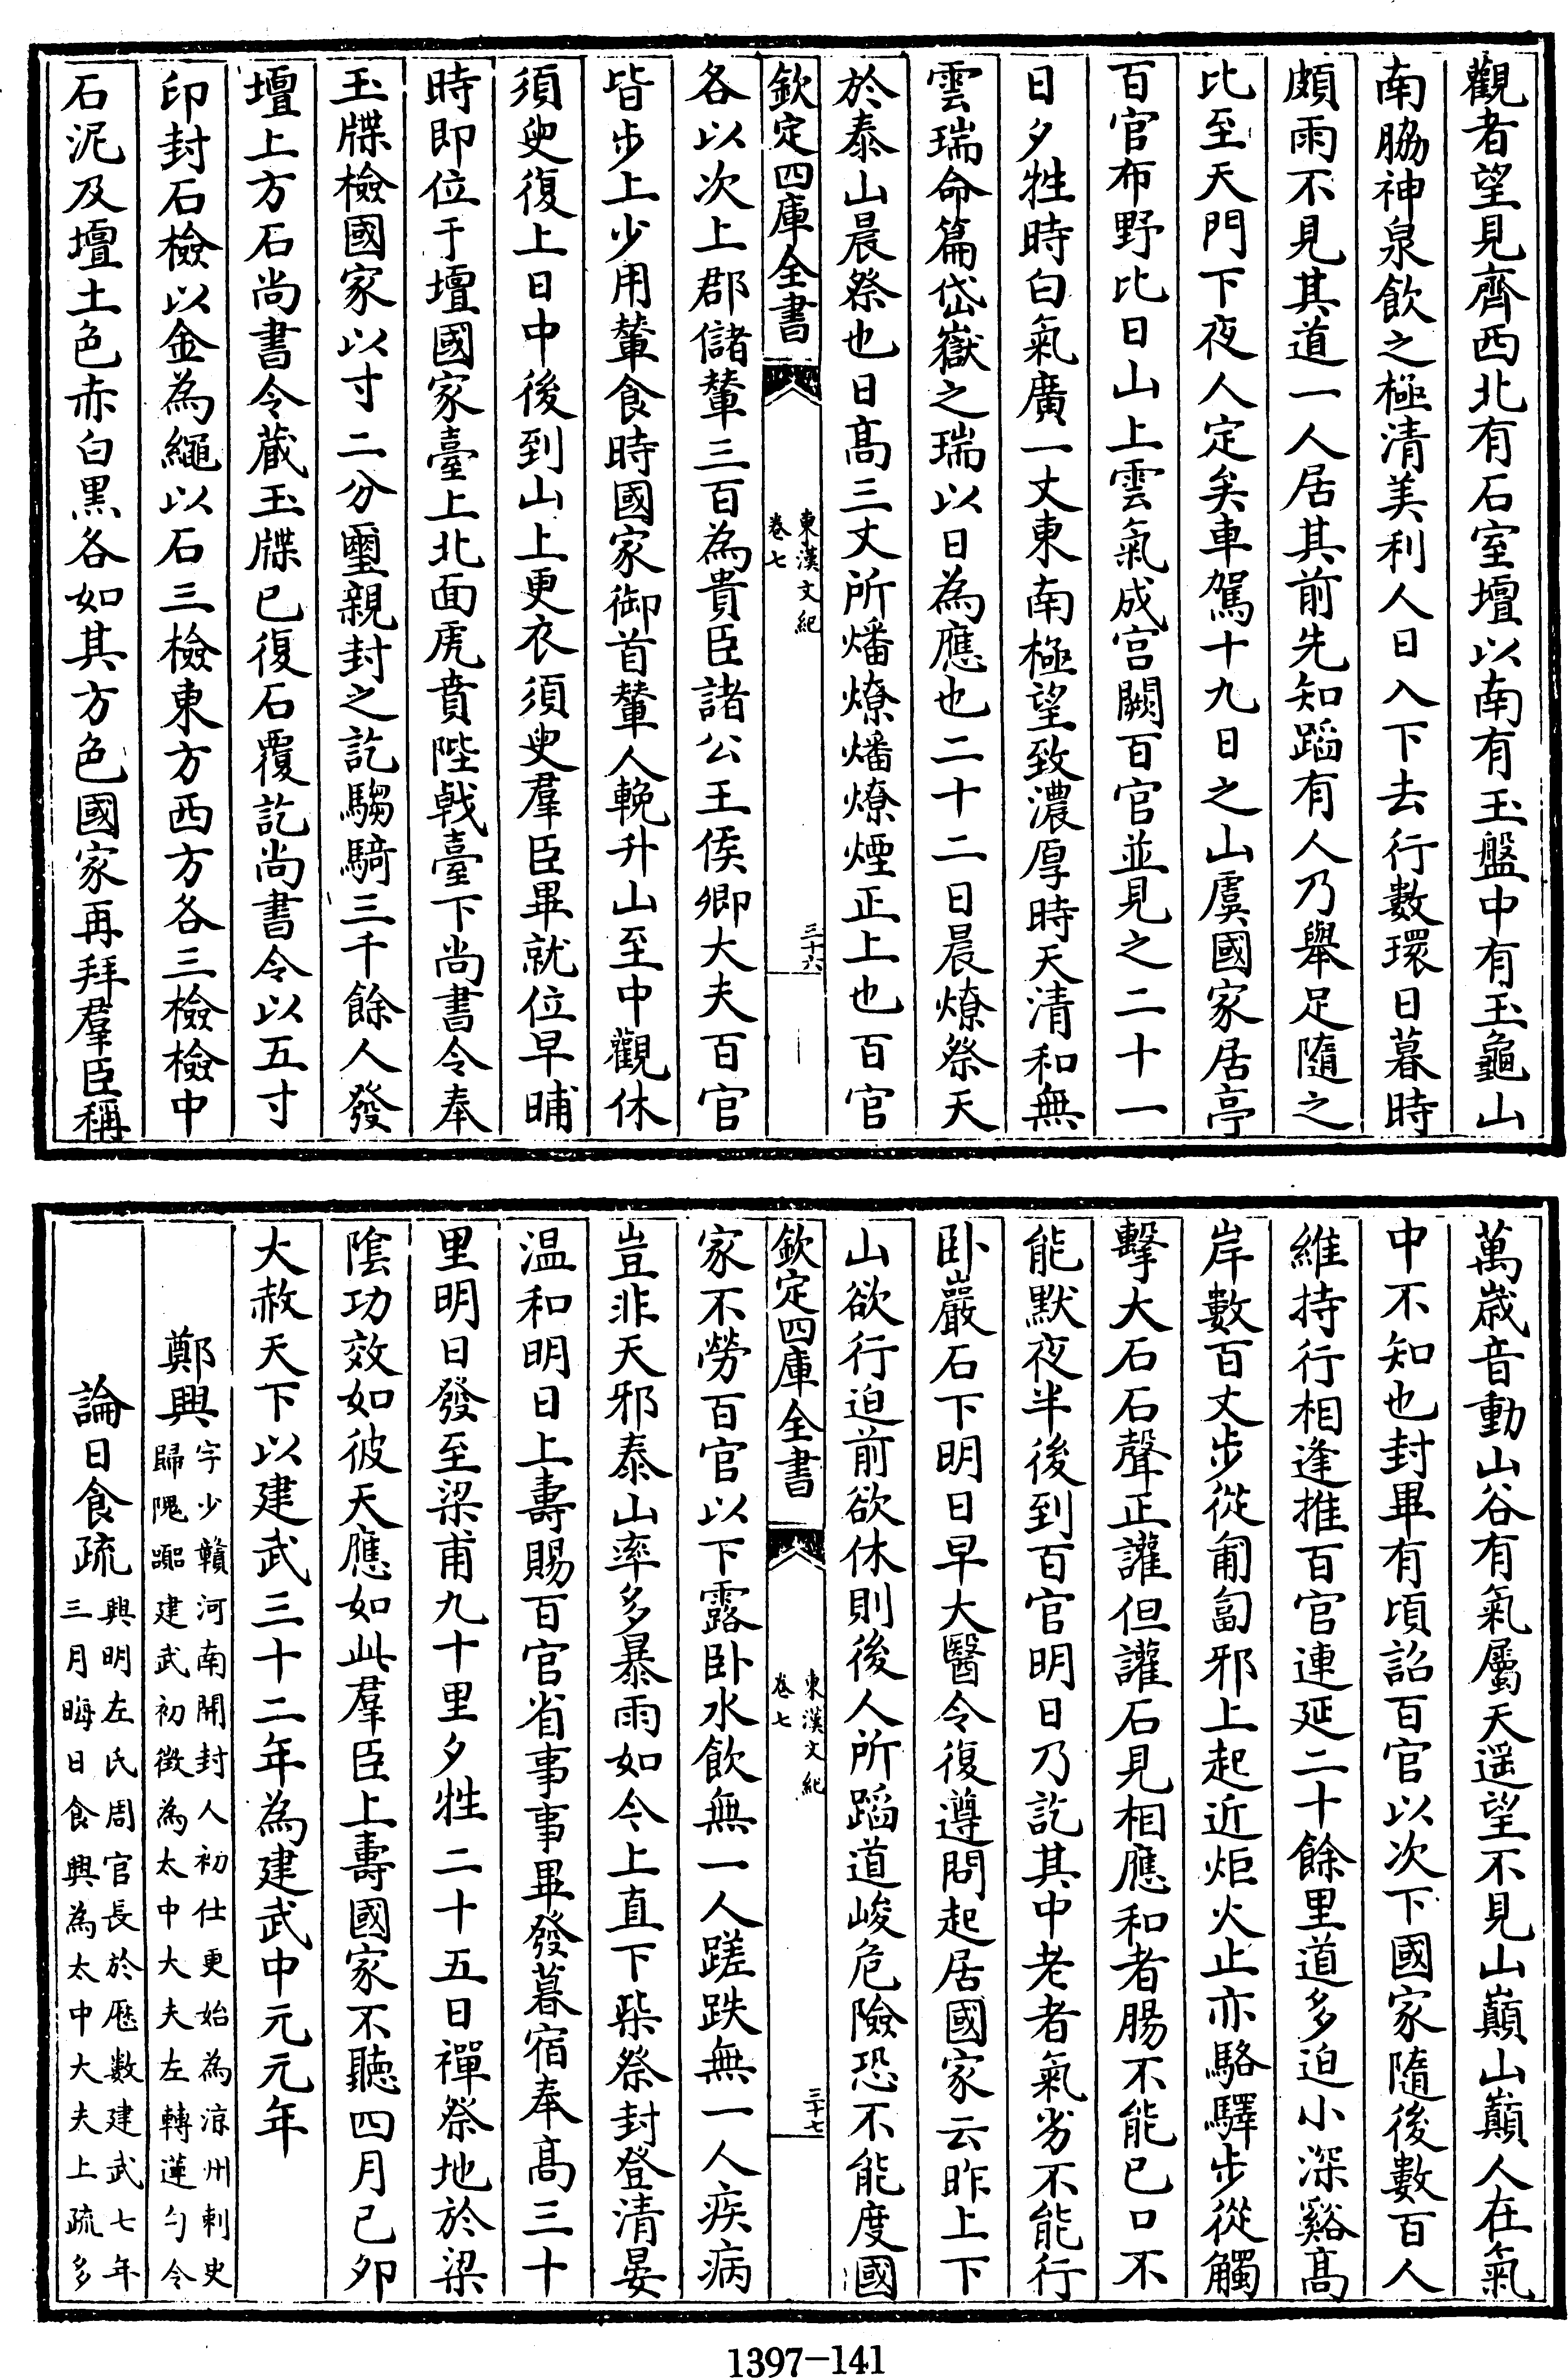 觀者望見齊西北有石室壇以南有玉盤中有玉龜山
南脇神泉飲之極清美利人日入下去行數環日暮時
頗雨不見其道一人居其前先知蹈有人乃舉足隨之
比至天門下夜人定矣車駕十九日之山虞國家居亭
百官布野比日山上雲氣成宫闕百官並見之二十一
日夕牲時白氣廣一丈東南極望致濃厚時天清和無
雲瑞命篇岱嶽之瑞以日為應也二十二日晨燎祭天
於泰山晨祭也日髙三丈所燔燎燔燎煙正上也百官
欽定四庫全書
東漢文紀
卷七
三十六
各以次上郡儲輦三百為貴臣諸公王侯卿大夫百官
皆步上少用輦食時國家御首輦人輓升山至中觀休
須臾復上日中後到山上更衣須臾羣臣畢就位早晡
時即位于壇國家臺上北面虎賁陛㦸臺下尚書令奉
玉牒檢國家以寸二分璽親封之訖騶騎三千餘人發
壇上方石尚書令藏玉牒已復石覆訖尚書令以五寸
印封石檢以金為繩以石三檢東方西方各三檢檢中
石泥及壇土色赤白黒各如其方色國家再拜羣臣稱
萬歳音動山谷有氣屬天遥望不見山巔山巔人在氣
中不知也封畢有頃詔百官以次下國家隨後數百人
維持行相逢推百官連延二十餘里道多迫小深谿髙
岸數百丈步從匍匐邪上起近炬火止亦駱驛步從觸
擊大石石聲正讙但讙石見相應和者腸不能已口不
能默夜半後到百官明日乃訖其中老者氣劣不能行
卧巖石下明日早大醫令復遵問起居國家云昨上下
山欲行迫前欲休則後人所蹈道峻危險恐不能度國
欽定四庫全書
東漢文紀
卷七
三十七
家不勞百官以下露卧水飲無一人蹉跌無一人疾病
豈非天邪泰山率多暴雨如今上直下柴祭封登清晏
温和明日上壽賜百官省事事畢發暮宿奉髙三十
里明日發至梁甫九十里夕牲二十五日禪祭地於梁
隂功效如彼天應如此羣臣上壽國家不聽四月已夘
大赦天下以建武三十二年為建武中元元年
鄭興字少贛河南開封人初仕更始為涼州刺史
歸隗囂建武初徵為太中大夫左轉蓮勺令
論日食疏興明左氏周官長於厯數建武七年
三月晦日食興為太中大夫上疏多
1397-141